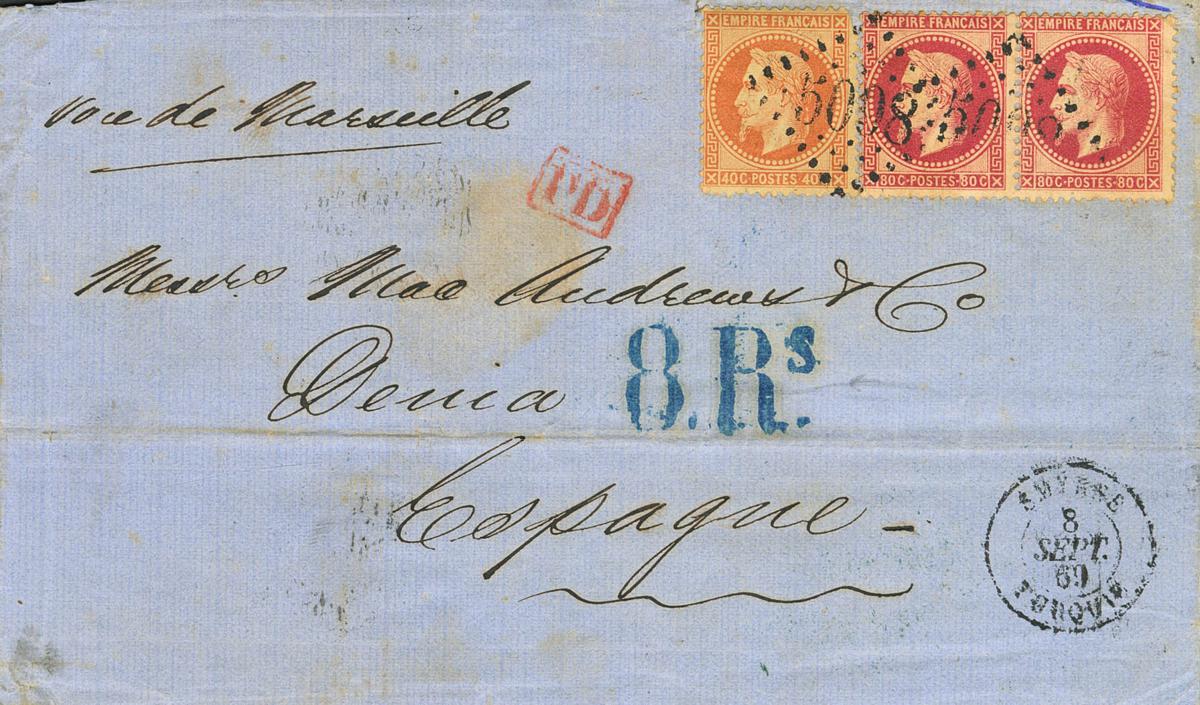 EMPIRE FRANÇAIS EMPIRE FRANÇAIS EMPIRE FRANÇAIS
5098 5098
40 C · POSTES · 40 C 80 C · POSTES · 80 C 80 C · POSTES · 80 C
voie de Marseille
PD
Messrs Mac Andrews & Co
Denia
8.Rs.
Espagne -
SMYRNE
8
SEPT.
69
TURQUIE